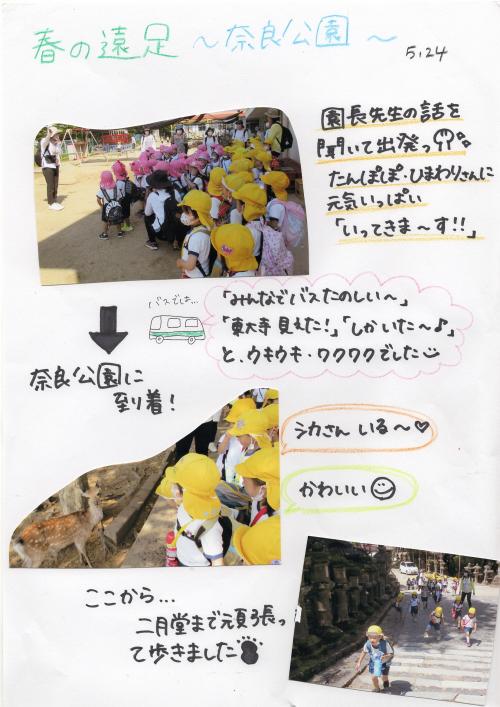 春の遠足 ～奈良公園～
5.24
園長先生の話を
聞いて出発っ!!
たんぽぽ・ひまわりさんに
元気いっぱい
「いってきま～す!!」
バスでは…
「みんなでバスたのしい～」
「東大寺見えた!」「しかいた～♪」
と、ウキウキ・ワクワクでした
奈良公園に
到着!
シカさん いる～♡
かわいい
ここから…
二月堂まで頑張っ
て歩きました